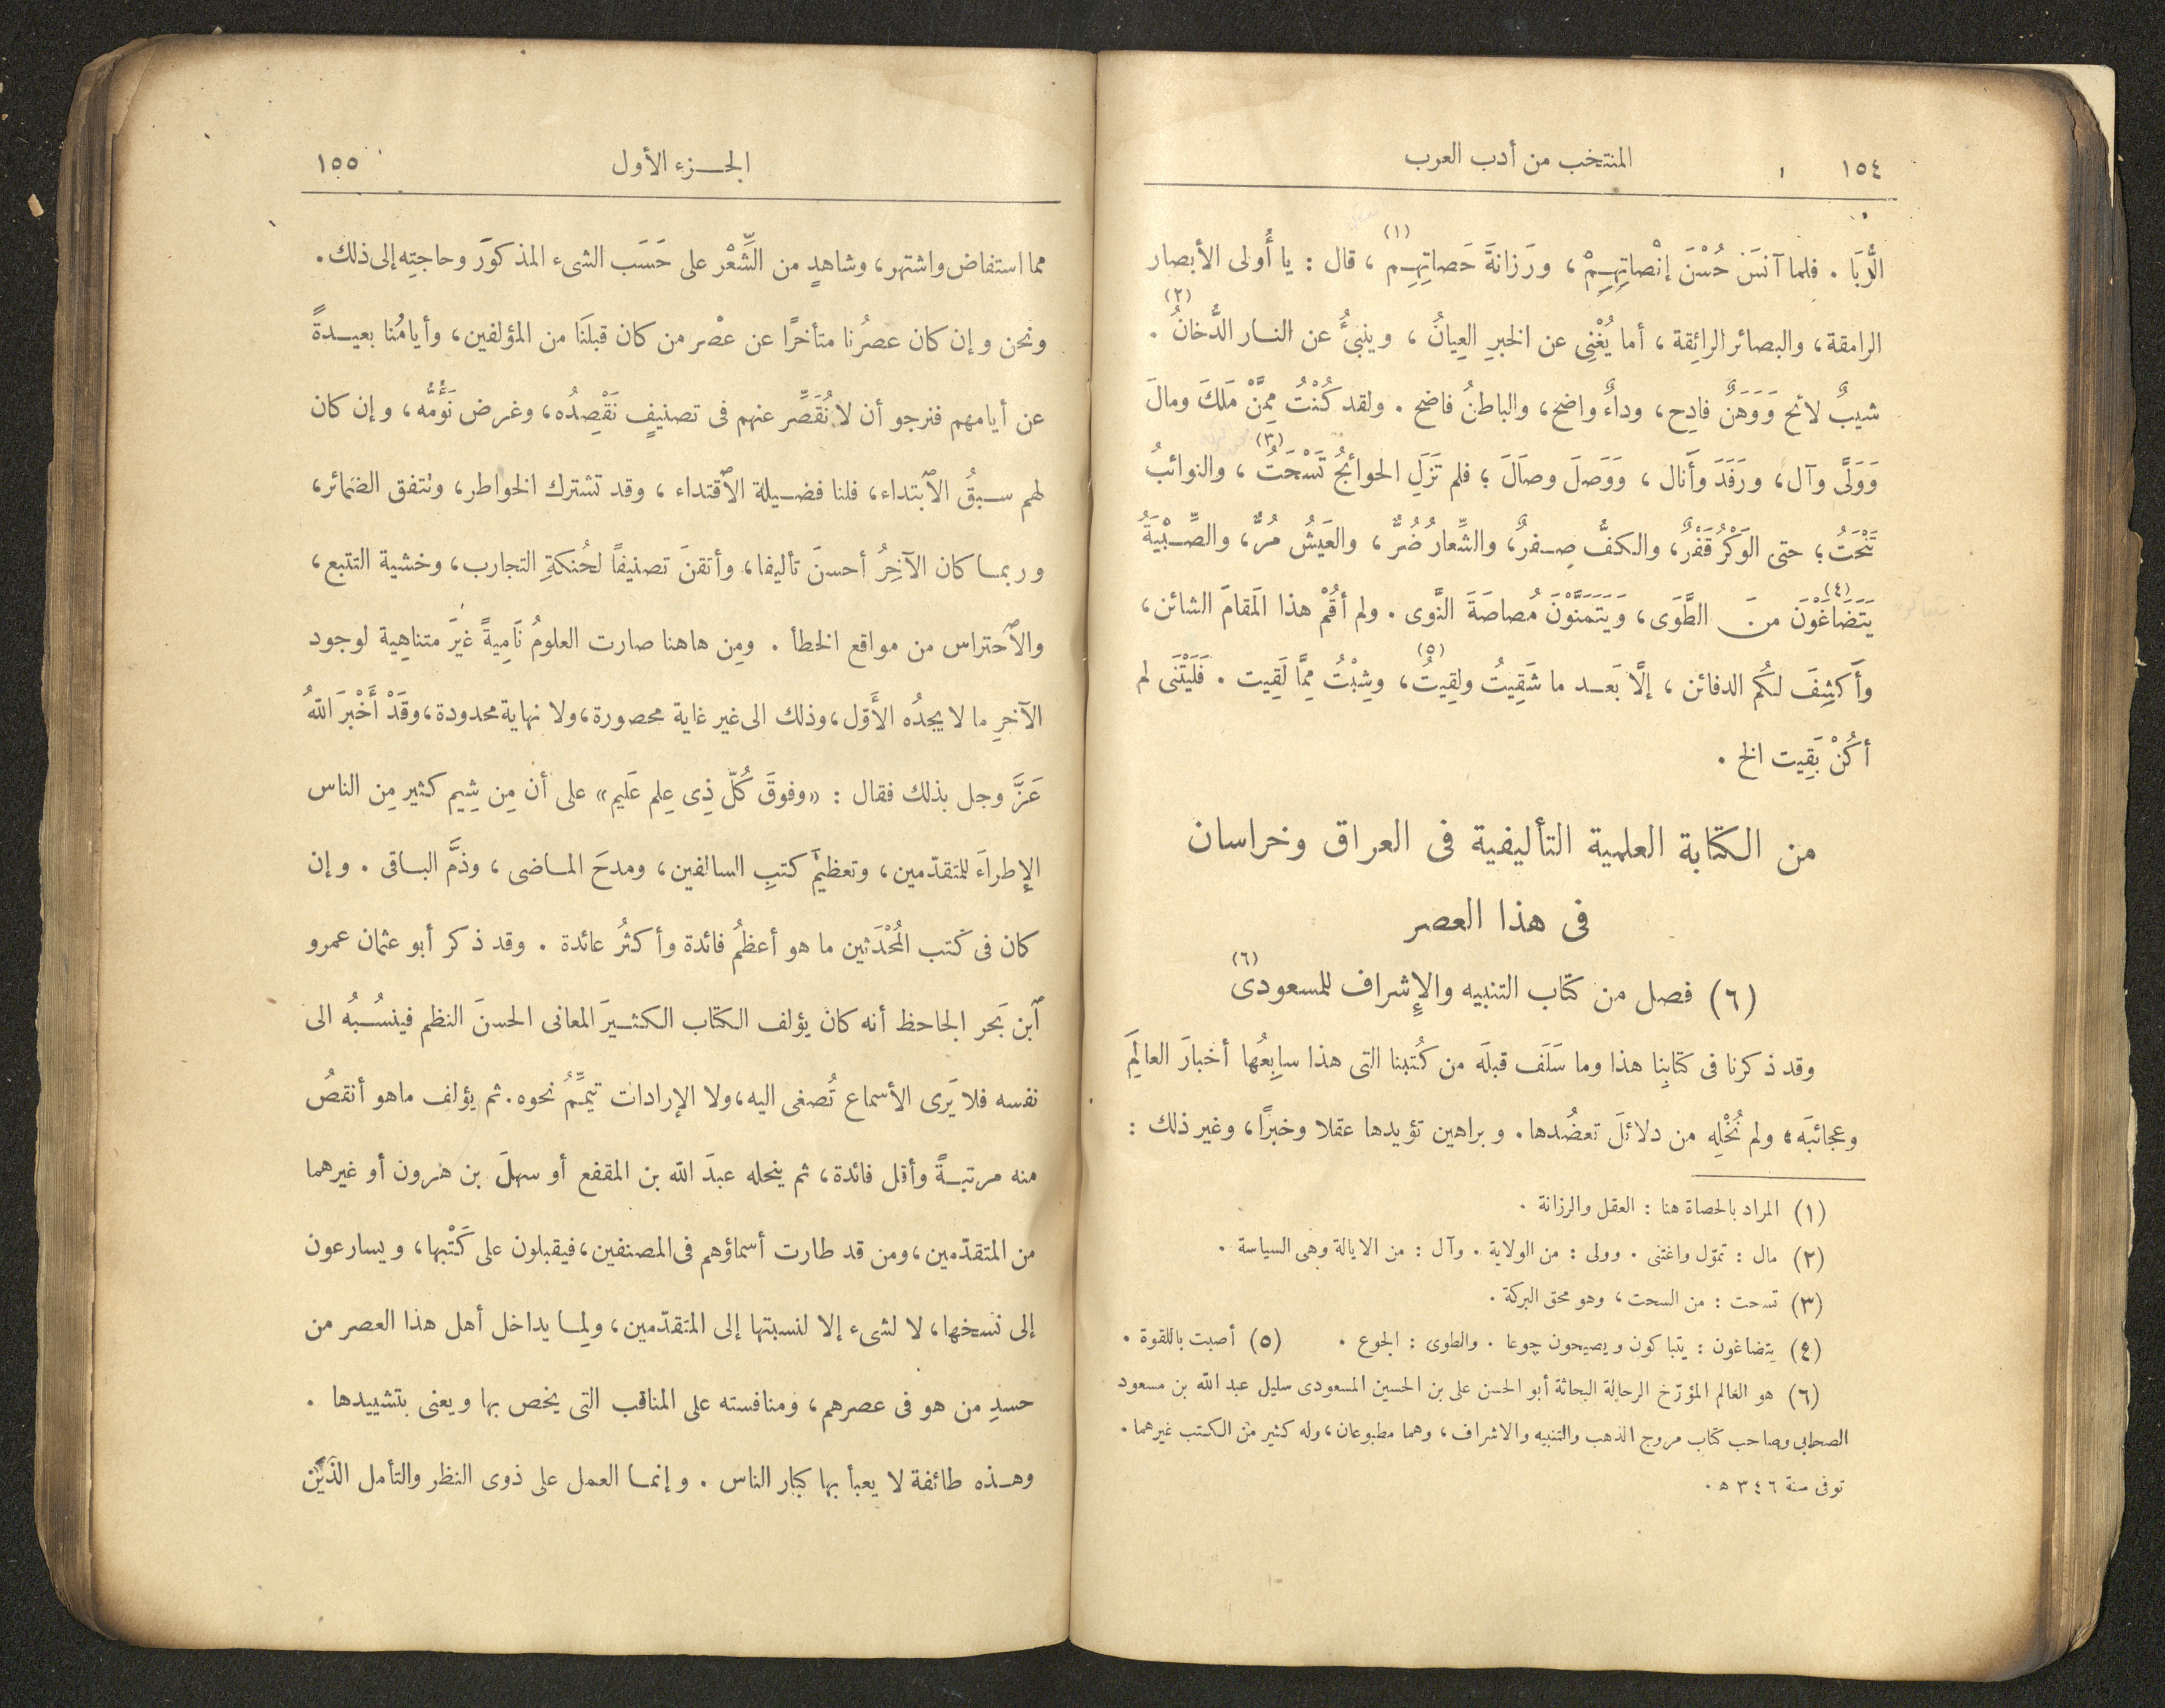 ١٥٤ المنتخب من أدب العرب
الرُّبَا . فلما آنسَ حُسْنَ إنْصاتِهِمْ ، ورَزانةَ حَصاتِهِم (١) ، قال : يا أُولى الأبصار
الرامقة، والبصائر الرائِقة ، أما يُغْنِى عن الخبرِ العِيانُ ، وينبئُ عن النار الدُّخانُ (٢) .
شيبٌ لائح وَوَهَنٌ فادِح، وداءٌ واضح، والباطنُ فاضح . ولقد كُنْتُ مِمَّنْ مَلكَ ومالَ
وَوَلَّى وآل، ورَفَدَ وأَنال ، وَوَصلَ وصاَلَ ؛ فلم تَزَلِ الحوائجُ تَسْحَتُ (٣) ، والنوائبُ
تَنْحَتُ ؛ حتى الوَكْرُ قَفْرٌ، والكفُّ صِفرٌ، والشِّعارُ ضُرٌّ ، والعَيشُ مُرٌّ، والصِّبْيَةُ
يَتَضَاغَوْنَ (٤) منَ الطَّوَى، وَيَتَمَنَّوْنَ مُصاصَةَ النَّوى . ولم أقُمْ هذا المَقامَ الشائن،
وأَكشِفَ لكُم الدفائن ، إلَّا بَعد ما شَقِيتُ ولقِيتُ (٥)، وشِبْتُ مِمَّا لَقِيت . فَلَيْتَنى لم
أكُنْ بَقِيت الخ .
من الكتابة العلمية التأليفية فى العراق وخراسان
فى هذا العصر
(٦) فصل من كتاب التنبيه والإشراف للمسعودى (٦)
وقد ذكرنا فى كتابِنا هذا وما سَلَف قبلَه من كُتبنا التى هذا سابِعُها أخبارَ العالَمِ
وعجائبَه، ولم نُخْلِه من دلائلَ تعضُدها. وبراهين تؤيدها عقلا وخبرًا، وغير ذلك :
(١) المراد بالحصاة هنا : العقل والرزانة .
(٢) مال : تموّل واغتنى . وولى : من الولاية . وآل : من الايالة وهى السياسة .
(٣) تسحت : من السحت، وهو محق البركة .
(٤) يتضاغون : يتباكون ويصيحون جوعا . والطوى : الجوع . (٥) أصبت باللقوة .
(٦) هو العالم المؤرّخ الرحالة البحاثة أبو الحسن على بن الحسين المسعودى سليل عبد الله بن مسعود
الصحابى وصاحب كتاب مروج الذهب والتنبيه والاشراف، وهما مطبوعان، وله كثير من الكتب غيرهما .
توفى سنة ٣٤٦ ه .
الجزء الأول ١٥٥
مما استفاض واشتهر، وشاهدٍ من الشِّعْر على حَسَب الشىء المذكور وحاجتِه إلى ذلك .
ونحن وإن كان عصرُنا متأخرًا عن عصْر من كان قبلَنا من المؤلفين، وأيامُنا بعيدةً
عن أيامهم فنرجو أن لا نُقَصِّر عنهم فى تصنيفٍ نَقْصِدُه، وغرض نَؤُمُّه، وإن كان
لهم سبقُ الٱبتداء، فلنا فضيلة الٱقتداء ، وقد تشترك الخواطر، وتتفق الضمائر،
وربما كان الآخِرُ أحسنَ تأليفا، وأتقنَ تصنيفًا لحُنكةِ التجارب، وخشية التتبع،
والٱحتراس من مواقع الخطأ . ومِن هاهنا صارت العلومُ نَامِيةً غيرَ متناهِية لوجود
الآخرِ ما لا يجدُه الأَوّل، وذلك الى غير غاية محصورة، ولا نهاية محدودة، وقَدْ أَخْبرَ اللهُ
عَزَّ وجل بذلك فقال : «وفوقَ كُلّ ذِى عِلم عَليم» على أن مِن شِيم كثير مِن الناس
الإطراءَ للمتقدّمين، وتعظيمَ كتبِ السالفين، ومدحَ الماضى ، وذمَّ الباقى . وإن
كان فى كُتب المُحْدَثين ما هو أعظمُ فائدة وأكثرُ عائدة . وقد ذكر أبو عثمان عمرو
ٱبن بَحر الجاحظ أنه كان يؤلف الكتاب الكثيرَ المعانى الحسنَ النظم فينسُبُه الى
نفسه فلا يَرى الأسماع تُصغى اليه، ولا الإرادات تيمِّمُ نحوه. ثم يؤلف ماهو أنقصُ
منه مرتبةً وأقل فائدة، ثم ينحله عبدَ الله بن المقفع أو سهلَ بن هٰرون أو غيرهما
من المتقدّمين، ومن قد طارت أسماؤهم فى المصنفين، فيقبلون على كَتْبها، ويسارعون
إلى نسخها، لا لشىء إلا لنسبتها إلى المتقدّمين، ولِما يداخل أهل هذا العصر من
حسدِ من هو فى عصرهم، ومنافسته على المناقب التى يخص بها ويعنى بتشييدها .
وهذه طائفة لا يعبأ بها كبار الناس . وإنما العمل على ذوى النظر والتأمل الذين